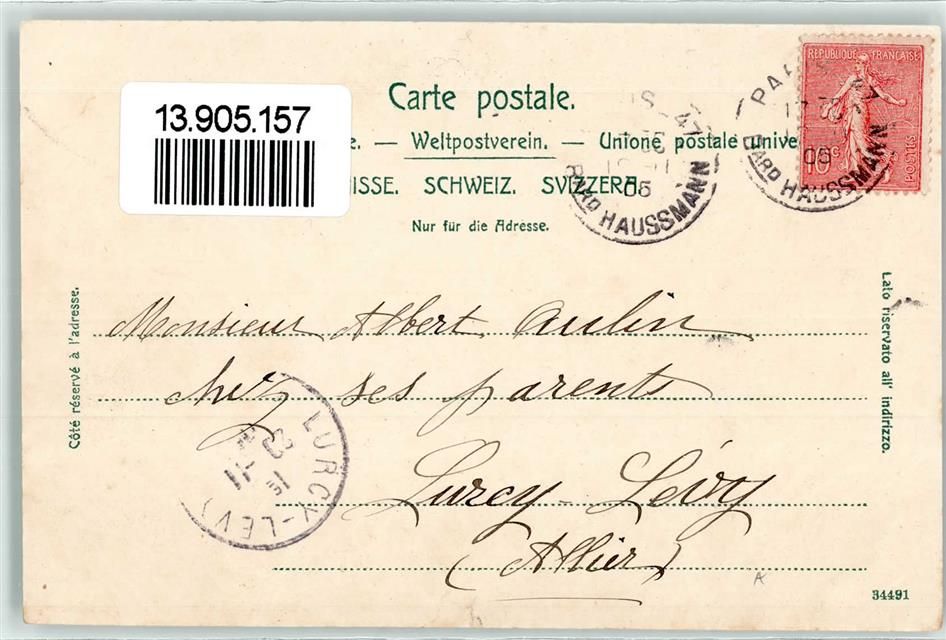 Carte postale.
13.905.157
e. — Weltpostverein. — Unione postale unive
ISSE. SCHWEIZ. SVIZZERA.
Nur für die Adresse.
REPUBLIQUE FRANÇAISE
10c
POSTES
PARIS-47
05
BARD HAUSSMANN
PA
05
BARD HAUSSMANN
Côté réservé à l'adresse.
Lato riservato all' indirizzo.
Monsieur Albert Aulin
chez ses parents
Lurcy-Lévy
(Allier)
LURCY-LEVY
34491